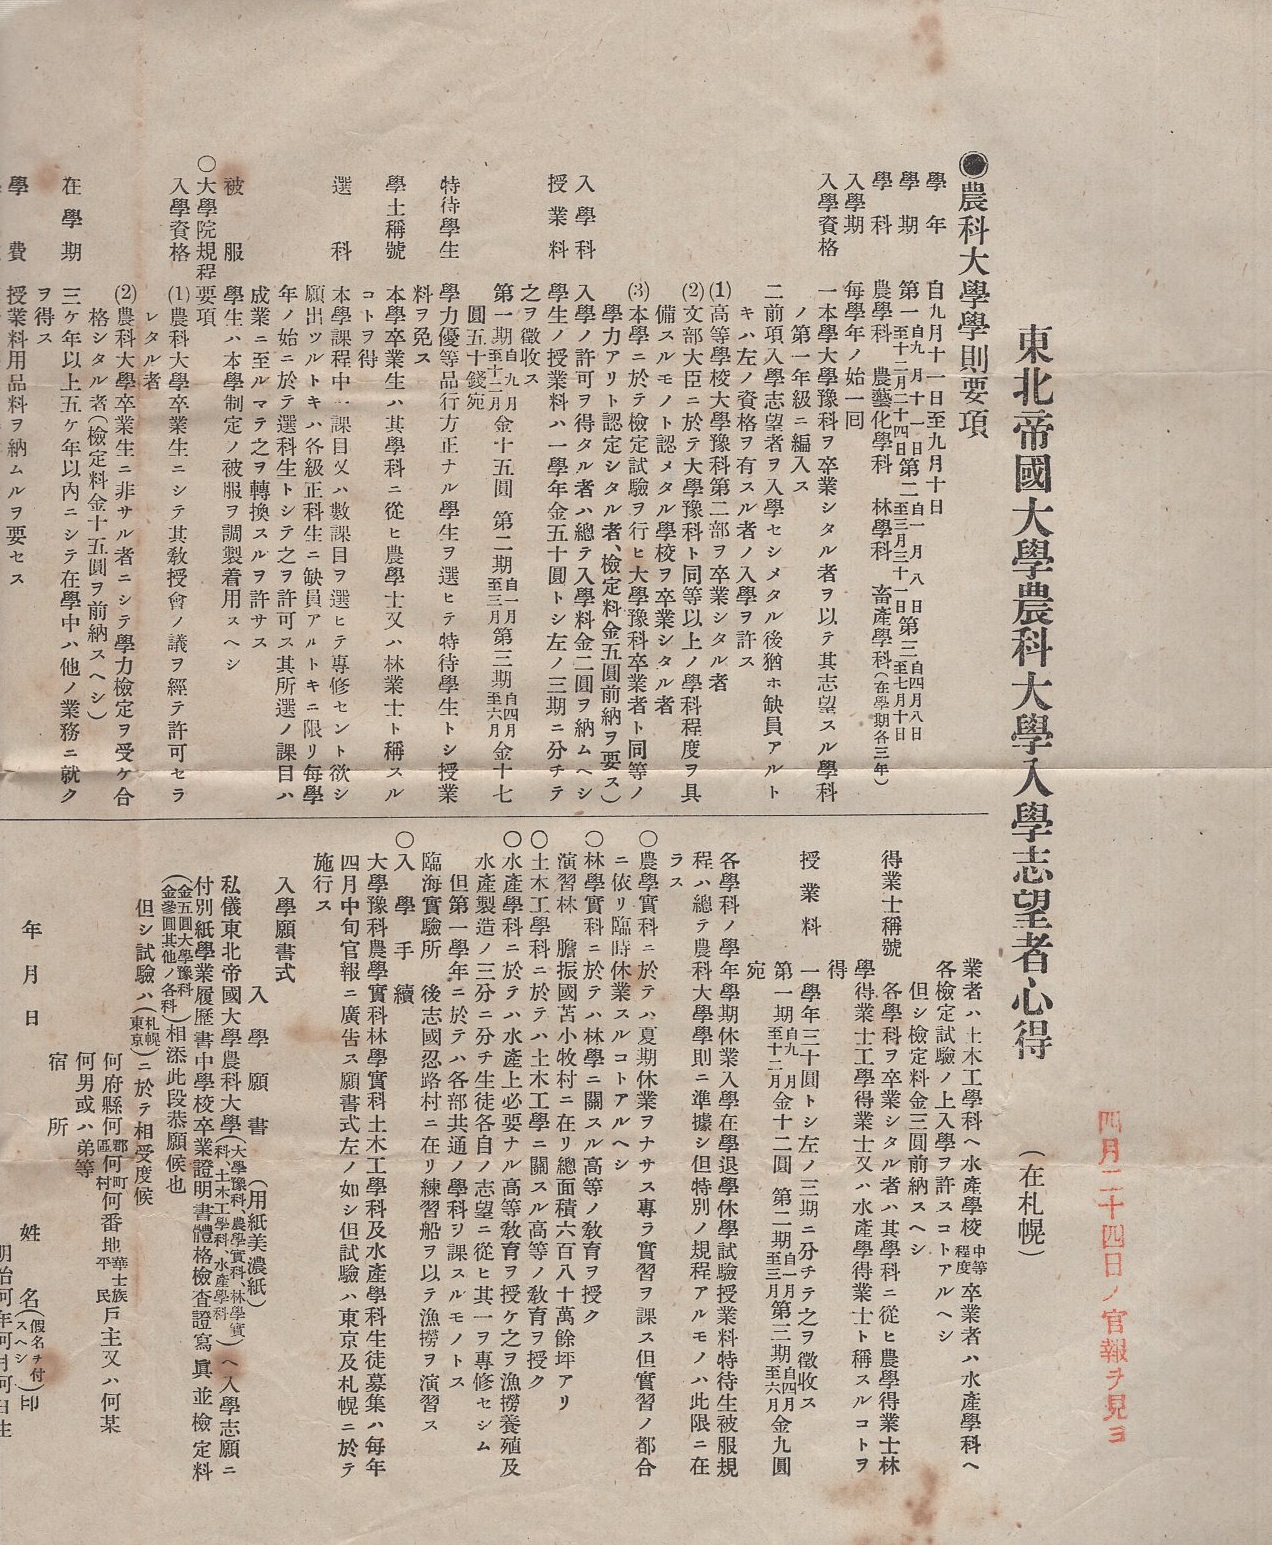 東北帝國大學農科大學入學志望者心得
(在札幌)
四月二十四日ノ官報ヲ見ヨ
●農科大學學則要項
學年 自九月十一日至九月十日
學期 第一自九月十一日至十二月二十四日第二自一月八日至三月三十一日第三自四月八日至七月十日
學科 農學科 農藝化學科 林學科 畜產學科(在學期各三年)
入學期 每學年ノ始一囘
入學資格 一本學大學豫科ヲ卒業シタル者ヲ以テ其志望スル學科
ノ第一年級ニ編入ス
二前項入學志望者ヲ入學セシメタル後猶ホ缺員アルト
キハ左ノ資格ヲ有スル者ノ入學ヲ許ス
(1)高等學校大學豫科第二部ヲ卒業シタル者
(2)文部大臣ニ於テ大學豫科ト同等以上ノ學科程度ヲ具
備スルモノト認メタル學校ヲ卒業シタル者
(3)本學ニ於テ檢定試驗ヲ行ヒ大學豫科卒業者ト同等ノ
學力アリト認定シタル者、檢定料金五圓前納ヲ要ス)
入學料 入學ノ許可ヲ得タル者ハ總テ入學料金二圓ヲ納ムヘシ
授業料 學生ノ授業料ハ一學年金五十圓トシ左ノ三期ニ分チテ
之ヲ徵收ス
第一期自九月至十二月金十五圓 第二期自一月至三月第三期自四月至六月金十七
圓五十錢宛
特待學生 學力優等品行方正ナル學生ヲ選ヒテ特待學生トシ授業
料ヲ免ス
學士稱號 本學卒業生ハ其學科ニ從ヒ農學士又ハ林業士ト稱スル
コトヲ得
選科 本學課程中一課目又ハ數課目ヲ選ヒテ專修セント欲シ
願出ツルトキハ各級正科生ニ缺員アルトキニ限リ每學
年ノ始ニ於テ選科生トシテ之ヲ許可ス其所選ノ課目ハ
成業ニ至ルマテ之ヲ轉換スルヲ許サス
被服 學生ハ本學制定ノ被服ヲ調製着用スヘシ
○大學院規程要項
入學資格 (1)農科大學卒業生ニシテ其敎授會ノ議ヲ經テ許可セラ
レタル者
(2)農科大學卒業生ニ非サル者ニシテ學力檢定ヲ受ケ合
格シタル者(檢定料金十五圓ヲ前納スヘシ)
在學期 三ケ年以上五ケ年以內ニシテ在學中ハ他ノ業務ニ就ク
ヲ得ス
學費 授業料用品料ヲ納ムルヲ要セス
業者ハ土木工學科ヘ水產學校中等程度卒業者ハ水產學科ヘ
各檢定試驗ノ上入學ヲ許スコトアルヘシ
但シ檢定料金三圓前納スヘシ
得業士稱號 各學科ヲ卒業シタル者ハ其學科ニ從ヒ農學得業士林
學得業士工學得業士又ハ水產學得業士ト稱スルコトヲ
得
授業料 一學年三十圓トシ左ノ三期ニ分チテ之ヲ徵收ス
第一期自九月至十二月金十二圓 第二期自一月至三月第三期自四月至六月金九圓
宛
各學科ノ學年學期休業入學在學退學休學試驗授業料特待生被服規
程ハ總テ農科大學學則ニ準據シ但特別ノ規程アルモノハ此限ニ在
ラス
○農學實科ニ於テハ夏期休業ヲナサス專ラ實習ヲ課ス但實習ノ都合
ニ依リ臨時休業スルコトアルヘシ
○林學實科ニ於テハ林學ニ關スル高等ノ敎育ヲ授ク
演習林 膽振國苫小牧村ニ在リ總面積六百八十萬餘坪アリ
○土木工學科ニ於テハ土木工學ニ關スル高等ノ敎育ヲ授ク
○水產學科ニ於テハ水產上必要ナル高等敎育ヲ授ケ之ヲ漁撈養殖及
水產製造ノ三分ニ分チ生徒各自ノ志望ニ從ヒ其一ヲ專修セシム
但第一學年ニ於テハ各部共通ノ學科ヲ課スルモノトス
臨海實驗所 後志國忍路村ニ在リ練習船ヲ以テ漁撈ヲ演習ス
○入學手續
大學豫科農學實科林學實科土木工學科及水產學科生徒募集ハ每年
四月中旬官報ニ廣告ス願書式左ノ如シ但試驗ハ東京及札幌ニ於テ
施行ス
入學願書式
入學願書(用紙美濃紙)
私儀東北帝國大學農科大學(大學豫科、農學實科、林學實科、土木工學科、水產學科)ヘ入學志願ニ
付別紙學業履歷書中學校卒業證明書體格檢査證寫眞並檢定料
(金五圓大學豫科金參圓其他ノ各科)相添此段恭願候也
但シ試驗ハ(札幌東京)ニ於テ相受度候
何府縣何郡區何町村何番地華士族平民戶主又ハ何某
何男或ハ弟等
宿所
年月日 姓名(假名ヲ付スヘシ)印
明治何年何月何日生